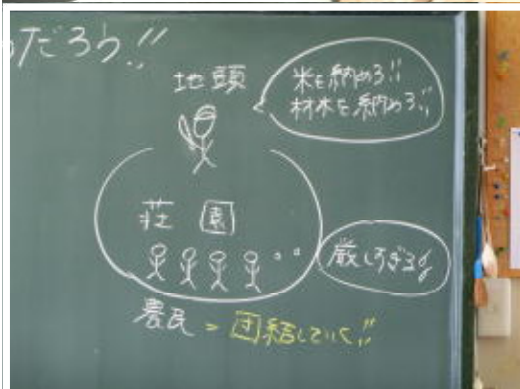 だろう!!
地頭
米を納めろ!!
材木を納めろ!!
荘園
厳しすぎる!!
農民 = 団結していく!!